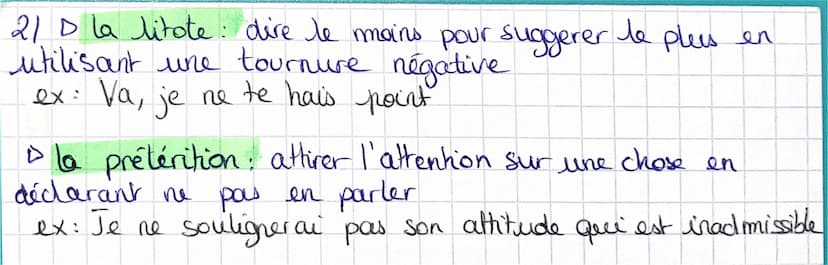 2) ▷ la litote : dire le moins pour suggerer le plus en
utilisant une tournure négative
ex : Va, je ne te hais point
▷ la prétérition : attirer l'attention sur une chose en
déclarant ne pas en parler
ex : Je ne soulignerai pas son attitude qui est inadmissible